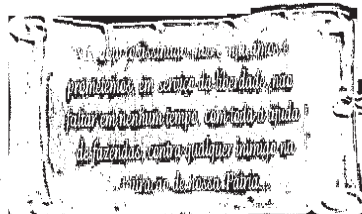 nos
prometemos, em serviço da liberdade, não
faltar em nenhum tempo, com toda a ajuda
de fazendas, contra qualquer inimigo na
de nossa Patria.